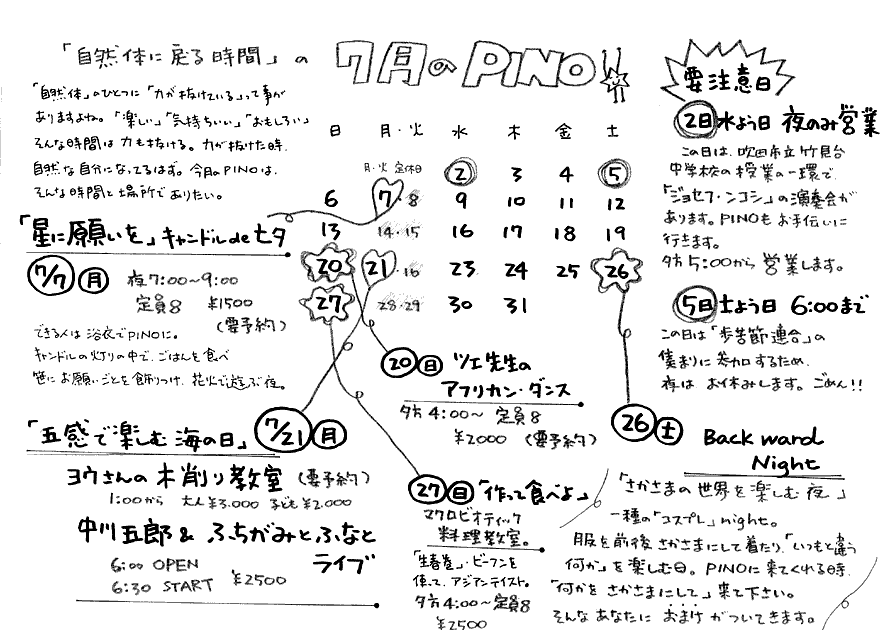 「自然体に戻る時間」の 7月のPINO!!
「自然体」のひとつに「力が抜けている」って事が
ありますよね。「楽しい」「気持ちいい」「おもしろい」
そんな時間は力も抜ける。力が抜けた時、
自然な自分になってるはず。今月のPINOは、
そんな時間と場所でありたい。
「星に願いを」キャンドルde七夕
7/7 月
夜7:00〜9:00
定員8 ¥1500
(要予約)
できる人は浴衣でPINOに。
キャンドルの灯りの中で、ごはんを食べ
笹にお願いごとを飾りつけ、花火で遊ぶ夜。
日 月・火 水 木 金 土
月・火 定休日 2 3 4 5
6 7・8 9 10 11 12
13 14・15 16 17 18 19
20 21・16 23 24 25 26
27 28・29 30 31
要注意日
2日水よう日 夜のみ営業
この日は、吹田市立竹見台
中学校の授業の一環で、
「ジョセフ・ンコシ」の演奏会が
あります。PINOもお手伝いに
行きます。
夕方5:00から営業します。
5日土よう日 6:00まで
この日は「歩苦節連合」の
集まりに参加するため、
夜はお休みします。ごめん!!
「五感で楽しむ海の日」 7/21 月
ヨウさんの木削り教室 (要予約)
1:00から 大人¥3.000 子ども¥2.000
中川五郎 & ふちがみとふなと
ライブ
6:00 OPEN
6:30 START ¥2500
20 日 ツェ先生の
アフリカン・ダンス
夕方4:00〜 定員8
¥2000 (要予約)
27 日 「作って食べよ」
マクロビオティック
料理教室。
「生春巻」・ビーフンを
使って、アジアンテイスト。
夕方4:00〜定員8
¥2500
26 土 Back ward
Night
「さかさまの世界を楽しむ夜」
一種の「コスプレ」night。
服を前後さかさまにして着たり、「いつもと違う
何か」を楽しむ日。PINOに来てくれる時、
「何かをさかさまにして」来て下さい。
そんなあなたにおまけがついてきます。